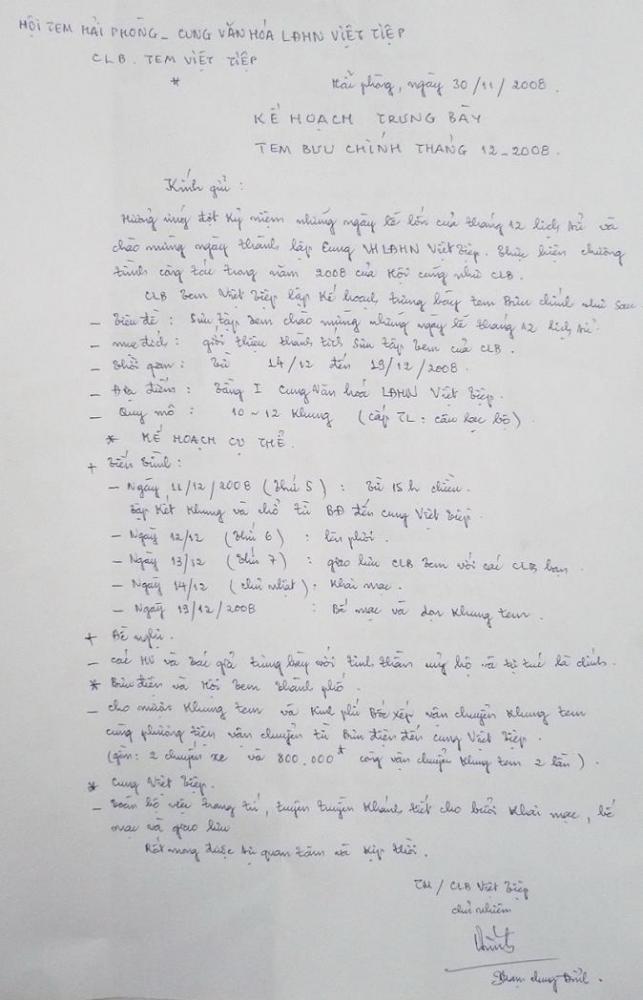 HỘI TEM HẢI PHÒNG - CUNG VĂN HÓA LĐHN VIỆT TIỆP
CLB. TEM VIỆT TIỆP
*
Hải phòng, ngày 30/11/2008.
KẾ HOẠCH TRƯNG BÀY
TEM BƯU CHÍNH THÁNG 12-2008.
Kính gửi :
Hưởng ứng đợt Kỷ niệm những ngày lễ lớn của tháng 12 lịch sử và
chào mừng ngày thành lập Cung VHLĐHN Việt Tiệp. Thực hiện chương
trình công tác trong năm 2008 của Hội cũng như CLB.
CLB Tem Việt Tiệp lập Kế hoạch trưng bày tem Bưu chính như sau
- Tiêu đề : Sưu tập Tem chào mừng những ngày lễ tháng 12 lịch sử.
- mục đích : giới thiệu thành tích Sưu tập Tem của CLB.
- Thời gian : Từ 14/12 đến 19/12/2008.
- Địa điểm : Tầng I Cung Văn hoá LĐHN Việt Tiệp.
- Quy mô : 10 ~ 12 Khung (cấp TL : câu lạc bộ).
* KẾ HOẠCH CỤ THỂ.
+ Tiến trình :
- Ngày 11/12/2008 (Thứ 5) : Từ 15h chiều.
Tập Kết Khung và chở từ BĐ đến cung Việt Tiệp.
- Ngày 12/12 (Thứ 6) : lên phôi.
- Ngày 13/12 (Thứ 7) : giao lưu CLB Tem với các CLB bạn.
- Ngày 14/12 (chủ nhật) : Khai mạc.
- Ngày 19/12/2008 : Bế mạc và dọn Khung tem.
+ Đề nghị.
- các HV và tác giả trưng bày với tinh thần ủng hộ và tự túc là chính.
* Bưu điện và Hội Tem Thành phố.
- cho mượn Khung tem và Kinh phí Bốc xếp vận chuyển Khung tem
cùng phương tiện vận chuyển từ Bưu điện đến cung Việt Tiệp.
(gồm : 2 chuyến xe và 800.000đ công vận chuyển Khung tem 2 lần).
* Cung Việt Tiệp.
- Toàn bộ việc trang trí, tuyên truyền Khánh tiết cho buổi Khai mạc, bế
mạc và giao lưu
Rất mong được sự quan tâm và Kịp thời.
TM/CLB Việt Tiệp
chủ nhiệm